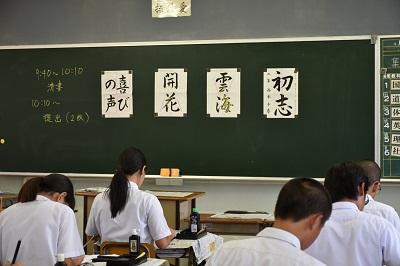 9:40〜10:10
清書
10:10〜
提出(2枚)
喜び
の声
開花
雲海
初志
集
1 国
2 道
3 体
4 英
5 理
6 社